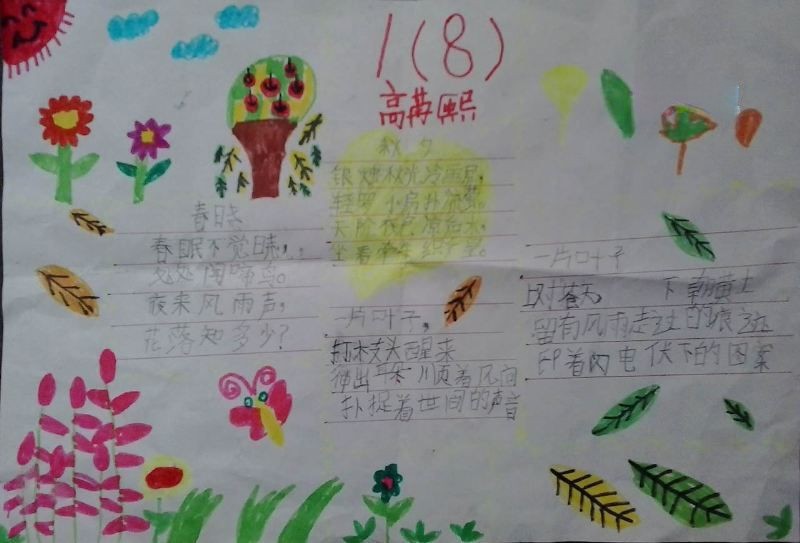 1(8)
高苒熙
春晓
春眠不觉晓,
处处闻啼鸟。
夜来风雨声,
花落知多少?
秋夕
银烛秋光冷画屏,
轻罗小扇扑流萤。
天阶夜色凉如水,
坐看牵牛织女星。
一片叶子,
打木支头醒来
伸出耳朵 顺着风向
扑捉着世间的声音
一片叶子
上对苍天, 下朝黄土
留有风雨走过的痕迹
印着闪电伏下的图案